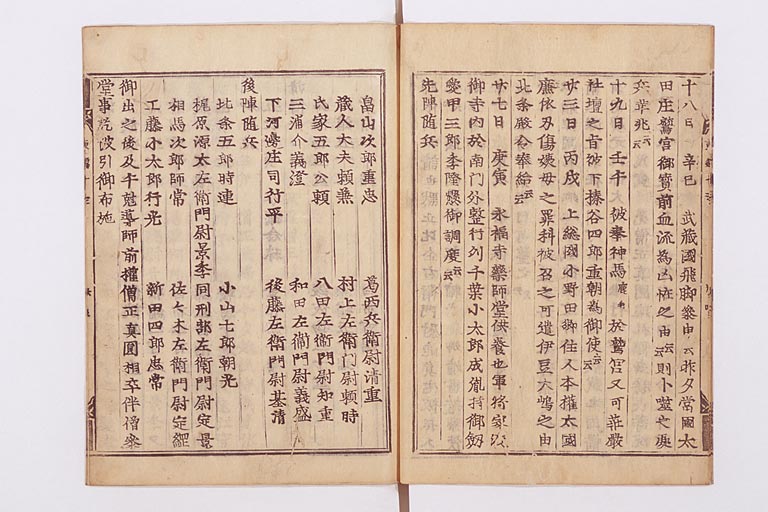 十八日 辛巳 武藏國飛脚參申云昨夕當國太
田庄鷲宮御寳前血流爲凶恠之由云云則卜筮之處
兵革兆云云
十九日 壬午 被奉神馬鹿毛於鷲宮又可莊嚴
社壇之旨被下榛谷四郎重朝爲御使云云
廿三日 丙戌 上総國小野田郷住人本權太國
廉依刃傷姨母之罪科被召之可遣伊豆大嶋之由
北条殿令奉給云云
廿七日 庚寅 永福寺藥師堂供養也軍將家渡
御寺内於南門外整行列千葉小太郎成胤持御釼
愛甲三郎季隆懸御調度云云
先陣随兵
畠山次郎重忠 葛西兵衛尉清重
藏人大夫頼兼 村上左衛門尉頼時
氏家五郎公頼 八田左衛門尉知重
三浦介義澄 和田左衛門尉義盛
下河邊庄司行平 後藤左衛門尉基清
後陣随兵
北条五郎時連 小山七郎朝光
梶原源太左衛門尉景季 同刑部左衛門尉定景
相馬次郎師常 佐々木左衛門尉定綱
工藤小太郎行光 新田四郎忠常
御出之後及午尅導師前權僧正真圓相率伴僧參
堂事訖被引御布施